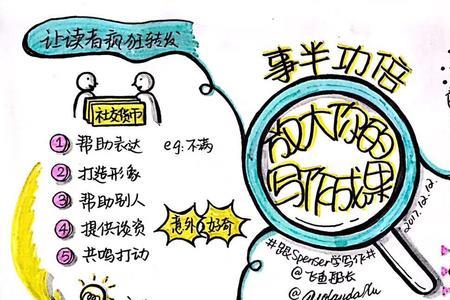 让读者疯狂转发
社交货币
1 帮助表达 eg:不满
2 打造形象
3 帮助别人
4 提供谈资
5 共鸣打动
意外 好奇
事半功倍
放大你的
写作成果
2017.12.12.
#跟Spenser学写作#
@飞鱼船长